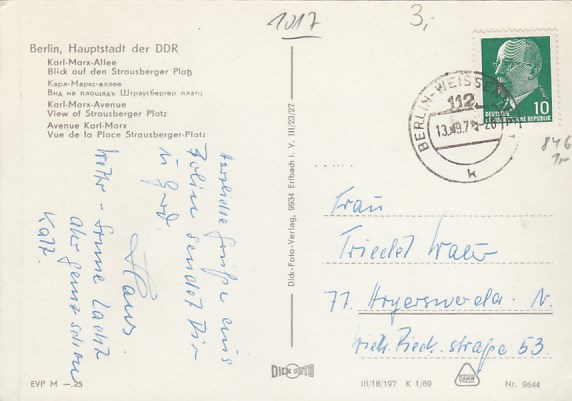 1017
3,-
Berlin, Hauptstadt der DDR
Karl-Marx-Allee
Blick auf den Strausberger Platz
Карл-Маркс-аллее
Вид на площадь Штраусбергер платц
Karl-Marx-Avenue
View of Strausberger Platz
Avenue Karl-Marx
Vue de la Place Strausberger-Platz
Herzliche Grüße aus
Berlin sendet Dir
u. Gerd
Hans.
Wetter - Sonne lacht
aber ganz schön
kalt.
Dick-Foto-Verlag, 9934 Erlbach i. V. III/23/27
BERLIN-WEISSENSEE 1
112
k
DEUTSCHE DEMOKRATISCHE REPUBLIK
10
846
Frau
77. Hoyerswerda. N.
straße 53.
EVP M —.25
DICK FOTO
III/18/197 K 1/69
Nr. 9644